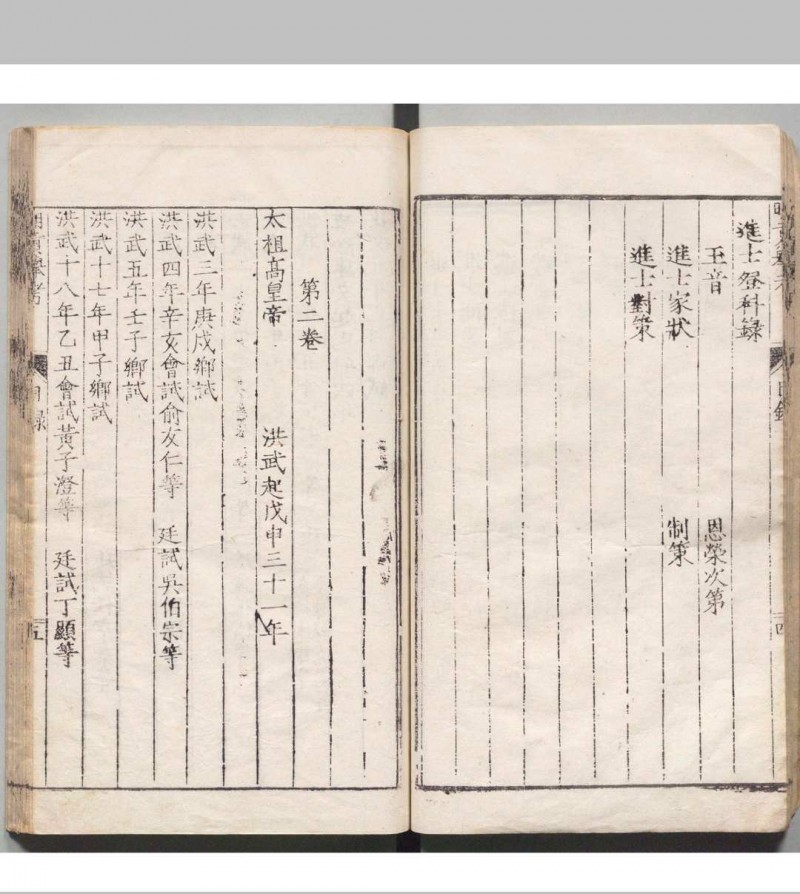 進士登科錄
玉音　恩榮次第
進士家狀　制策
進士對策
目錄
四
第二卷
太祖高皇帝　洪武起戊申三十一年
洪武三年庚戌鄉試
洪武四年辛亥會試俞友仁等　廷試吳伯宗等
洪武五年壬子鄉試
洪武十七年甲子鄉試
洪武十八年乙丑會試黃子澄等　廷試丁顯等
貢舉考
目錄
五